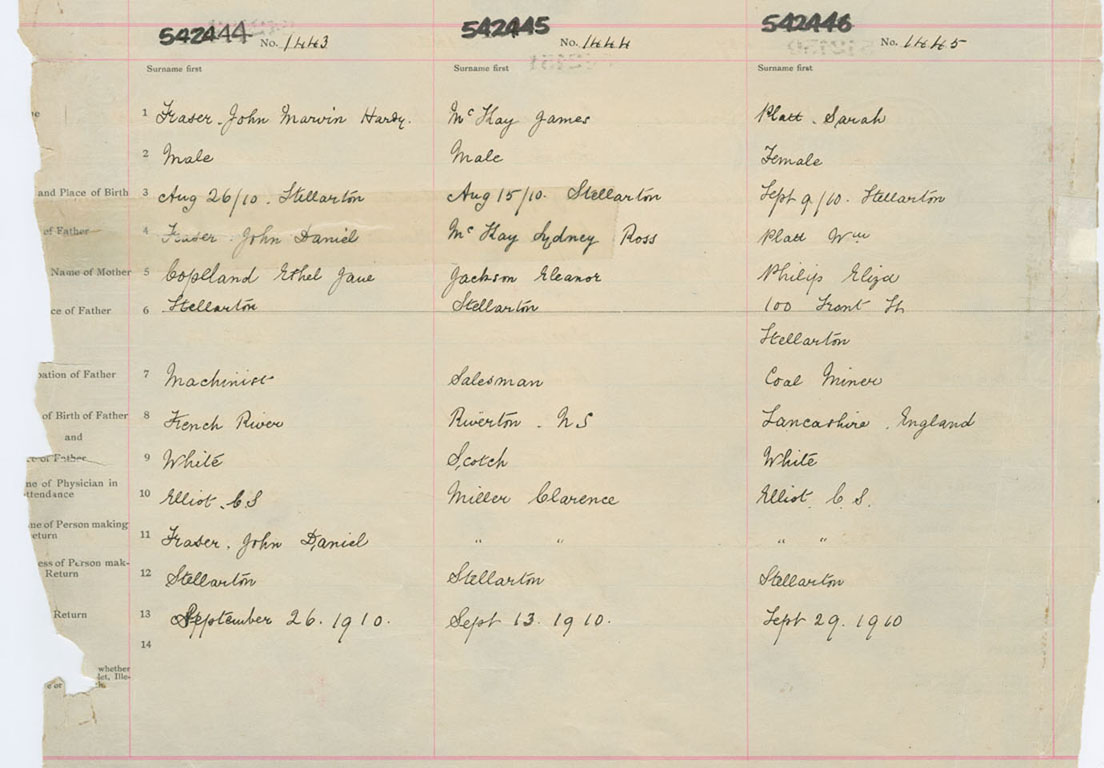 542444 No. 1443 542445 No. 1444 542446 No. 1445
Surname first Surname first Surname first
1 Fraser. John Marvin Hardy. Mc Kay James Platt. Sarah
2 Male Male Female
and Place of Birth 3 Aug 26/10. Stellarton Aug 15/10. Stellarton Sept 9/10. Stellarton
of Father 4 Fraser. John Daniel Mc Kay Sydney Ross Platt Wm
Name of Mother 5 Copeland Ethel Jane Jackson Eleanor Philip Eliza
ce of Father 6 Stellarton Stellarton 100 Front St
Stellarton
pation of Father 7 Machinist Salesman Coal Miner
of Birth of Father 8 French River Riverton. NS Lancashire, England
and
ce of Father 9 White Scotch White
me of Physician in
ttendance 10 Elliot. C S Miller Clarence Elliot. C S.
me of Person making
eturn 11 Fraser. John Daniel " " " "
ess of Person mak-
Return 12 Stellarton Stellarton Stellarton
Return 13 September 26. 1910. Sept 13. 1910. Sept 29. 1910
14
whether
let, Ille-
e or